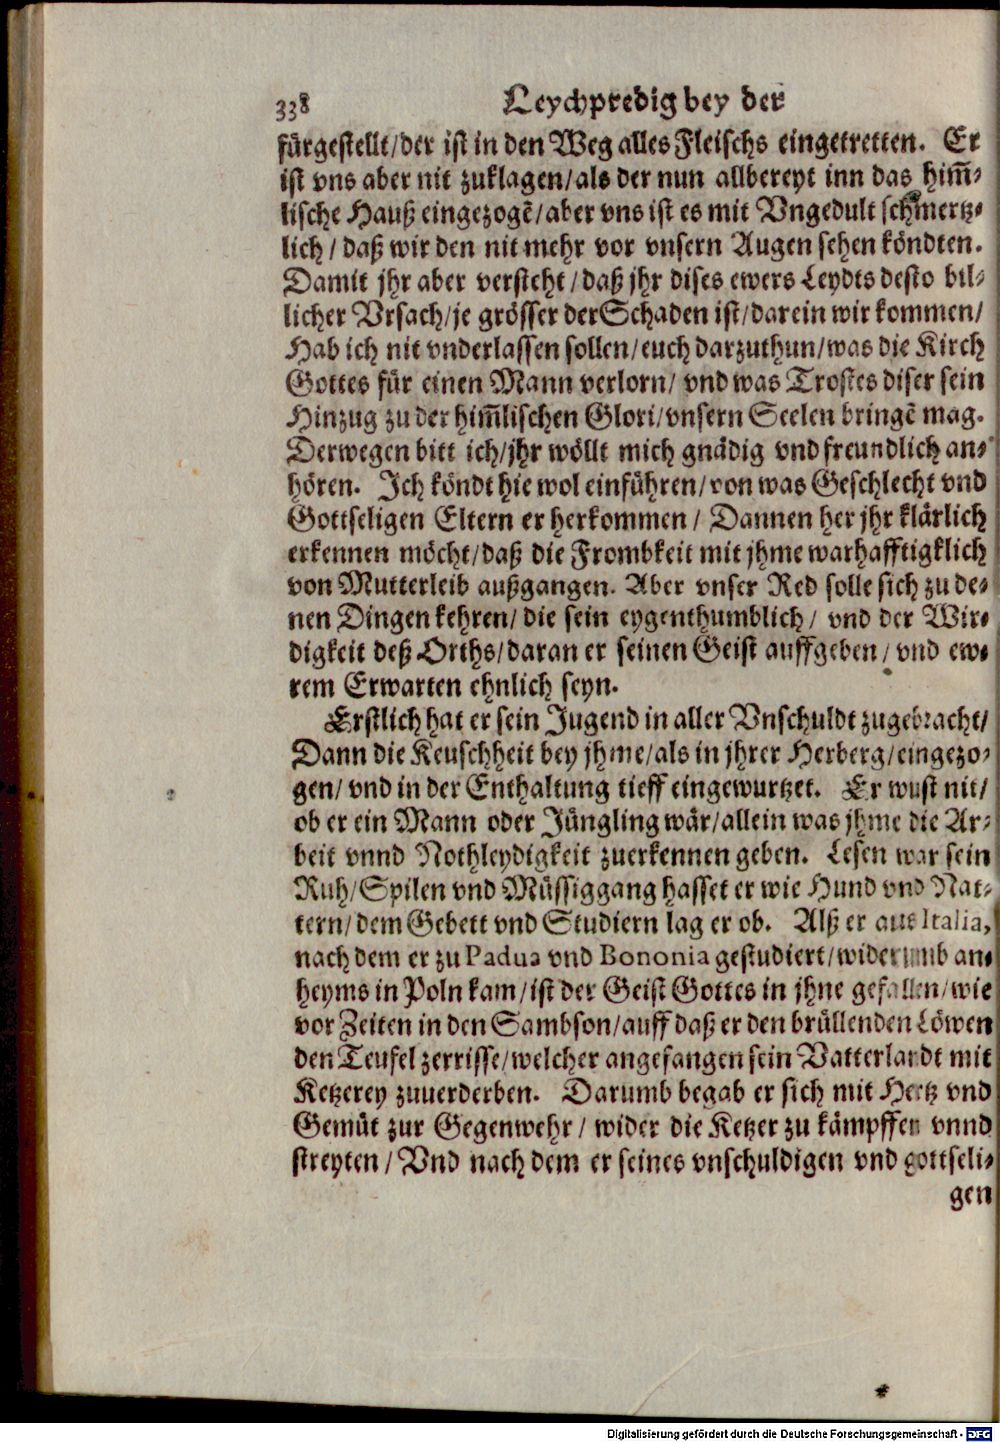 338 Leychpredig bey der
fürgestellt/der ist in den Weg alles Fleischs eingetretten. Er
ist vns aber nit zuklagen/als der nun allbereyt inn das him̃-
lische Hauß eingezogẽ/aber vns ist es mit Vngedult schmertz-
lich/daß wir den nit mehr vor vnsern Augen sehen köndten.
Damit jhr aber versteht/daß jhr dises ewers Leydts desto bil-
licher Vrsach/je grösser der Schaden ist/darein wir kommen/
Hab ich nit vnderlassen sollen/euch darzuthun/was die Kirch
Gottes für einen Mann verlorn/ vnd was Trostes diser sein
Hinzug zu der him̃lischen Glori/vnsern Seelen bringẽ mag.
Derwegen bitt ich/jhr wöllt mich gnädig vnd freundlich an-
hören. Ich köndt hie wol einführen/von was Geschlecht vnd
Gottseligen Eltern er herkommen/ Dannen her jhr klärlich
erkennen möcht/daß die Frombkeit mit jhme warhafftigklich
von Mutterleib außgangen. Aber vnser Red solle sich zu de-
nen Dingen kehren/die sein eygenthumblich/ vnd der Wir-
digkeit deß Orths/daran er seinen Geist auffgeben/vnd ew-
rem Erwarten ehnlich seyn.
Erstlich hat er sein Jugend in aller Vnschuldt zugebracht/
Dann die Keuschheit bey jhme/als in jhrer Herberg/eingezo-
gen/vnd in der Enthaltung tieff eingewurtzet. Er wust nit/
ob er ein Mann oder Jüngling wär/allein was jhme die Ar-
beit vnnd Nothleydigkeit zuerkennen geben. Lesen war sein
Ruh/Spilen vnd Müssiggang hasset er wie Hund vnd Nat-
tern/dem Gebett vnd Studiern lag er ob. Alß er aus Italia,
nach dem er zu Padua vnd Bononia gestudiert/widerumb an-
heyms in Poln kam/ist der Geist Gottes in jhne gefallen/wie
vor Zeiten in den Sambson/auff daß er den brüllenden Löwen
den Teufel zerrisse/welcher angefangen sein Vatterlandt mit
Ketzerey zuuerderben. Darumb begab er sich mit Hertz vnd
Gemüt zur Gegenwehr/ wider die Ketzer zu kämpffen vnnd
streyten/Vnd nach dem er seines vnschuldigen vnd gottseli-
gen
Digitalisierung gefördert durch die Deutsche Forschungsgemeinschaft - DFG